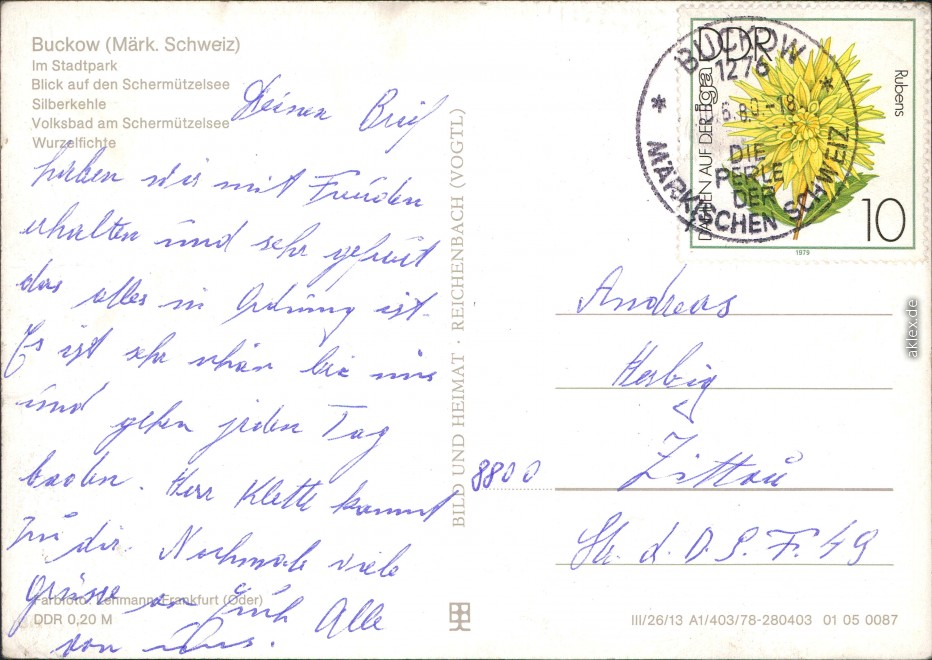 Buckow (Märk. Schweiz)
Im Stadtpark
Blick auf den Schermützelsee
Silberkehle
Volksbad am Schermützelsee
Wurzelfichte
Deinen Brief
haben wir mit Freuden
erhalten und sehr gefreut
das alles in Ordnung ist.
Es ist sehr schön bei uns
und gehen jeden Tag
baden. Herr Klette kommt
zu dir. Nochmals viele
Grüsse an Euch Alle
von uns.
Farbfoto: Lehmann, Frankfurt (Oder)
DDR 0,20 M
BILD UND HEIMAT · REICHENBACH (VOGTL)
DDR
DAHLIEN AUF DER iga
Rubens
10
1979
BUCKOW
1276
DIE
PERLE
DER
MÄRKISCHEN SCHWEIZ
Andreas
Herbig
8800 Zittau
Str. d. D. S. F. 49
III/26/13 A1/403/78-280403 01 05 0087
aklex.de